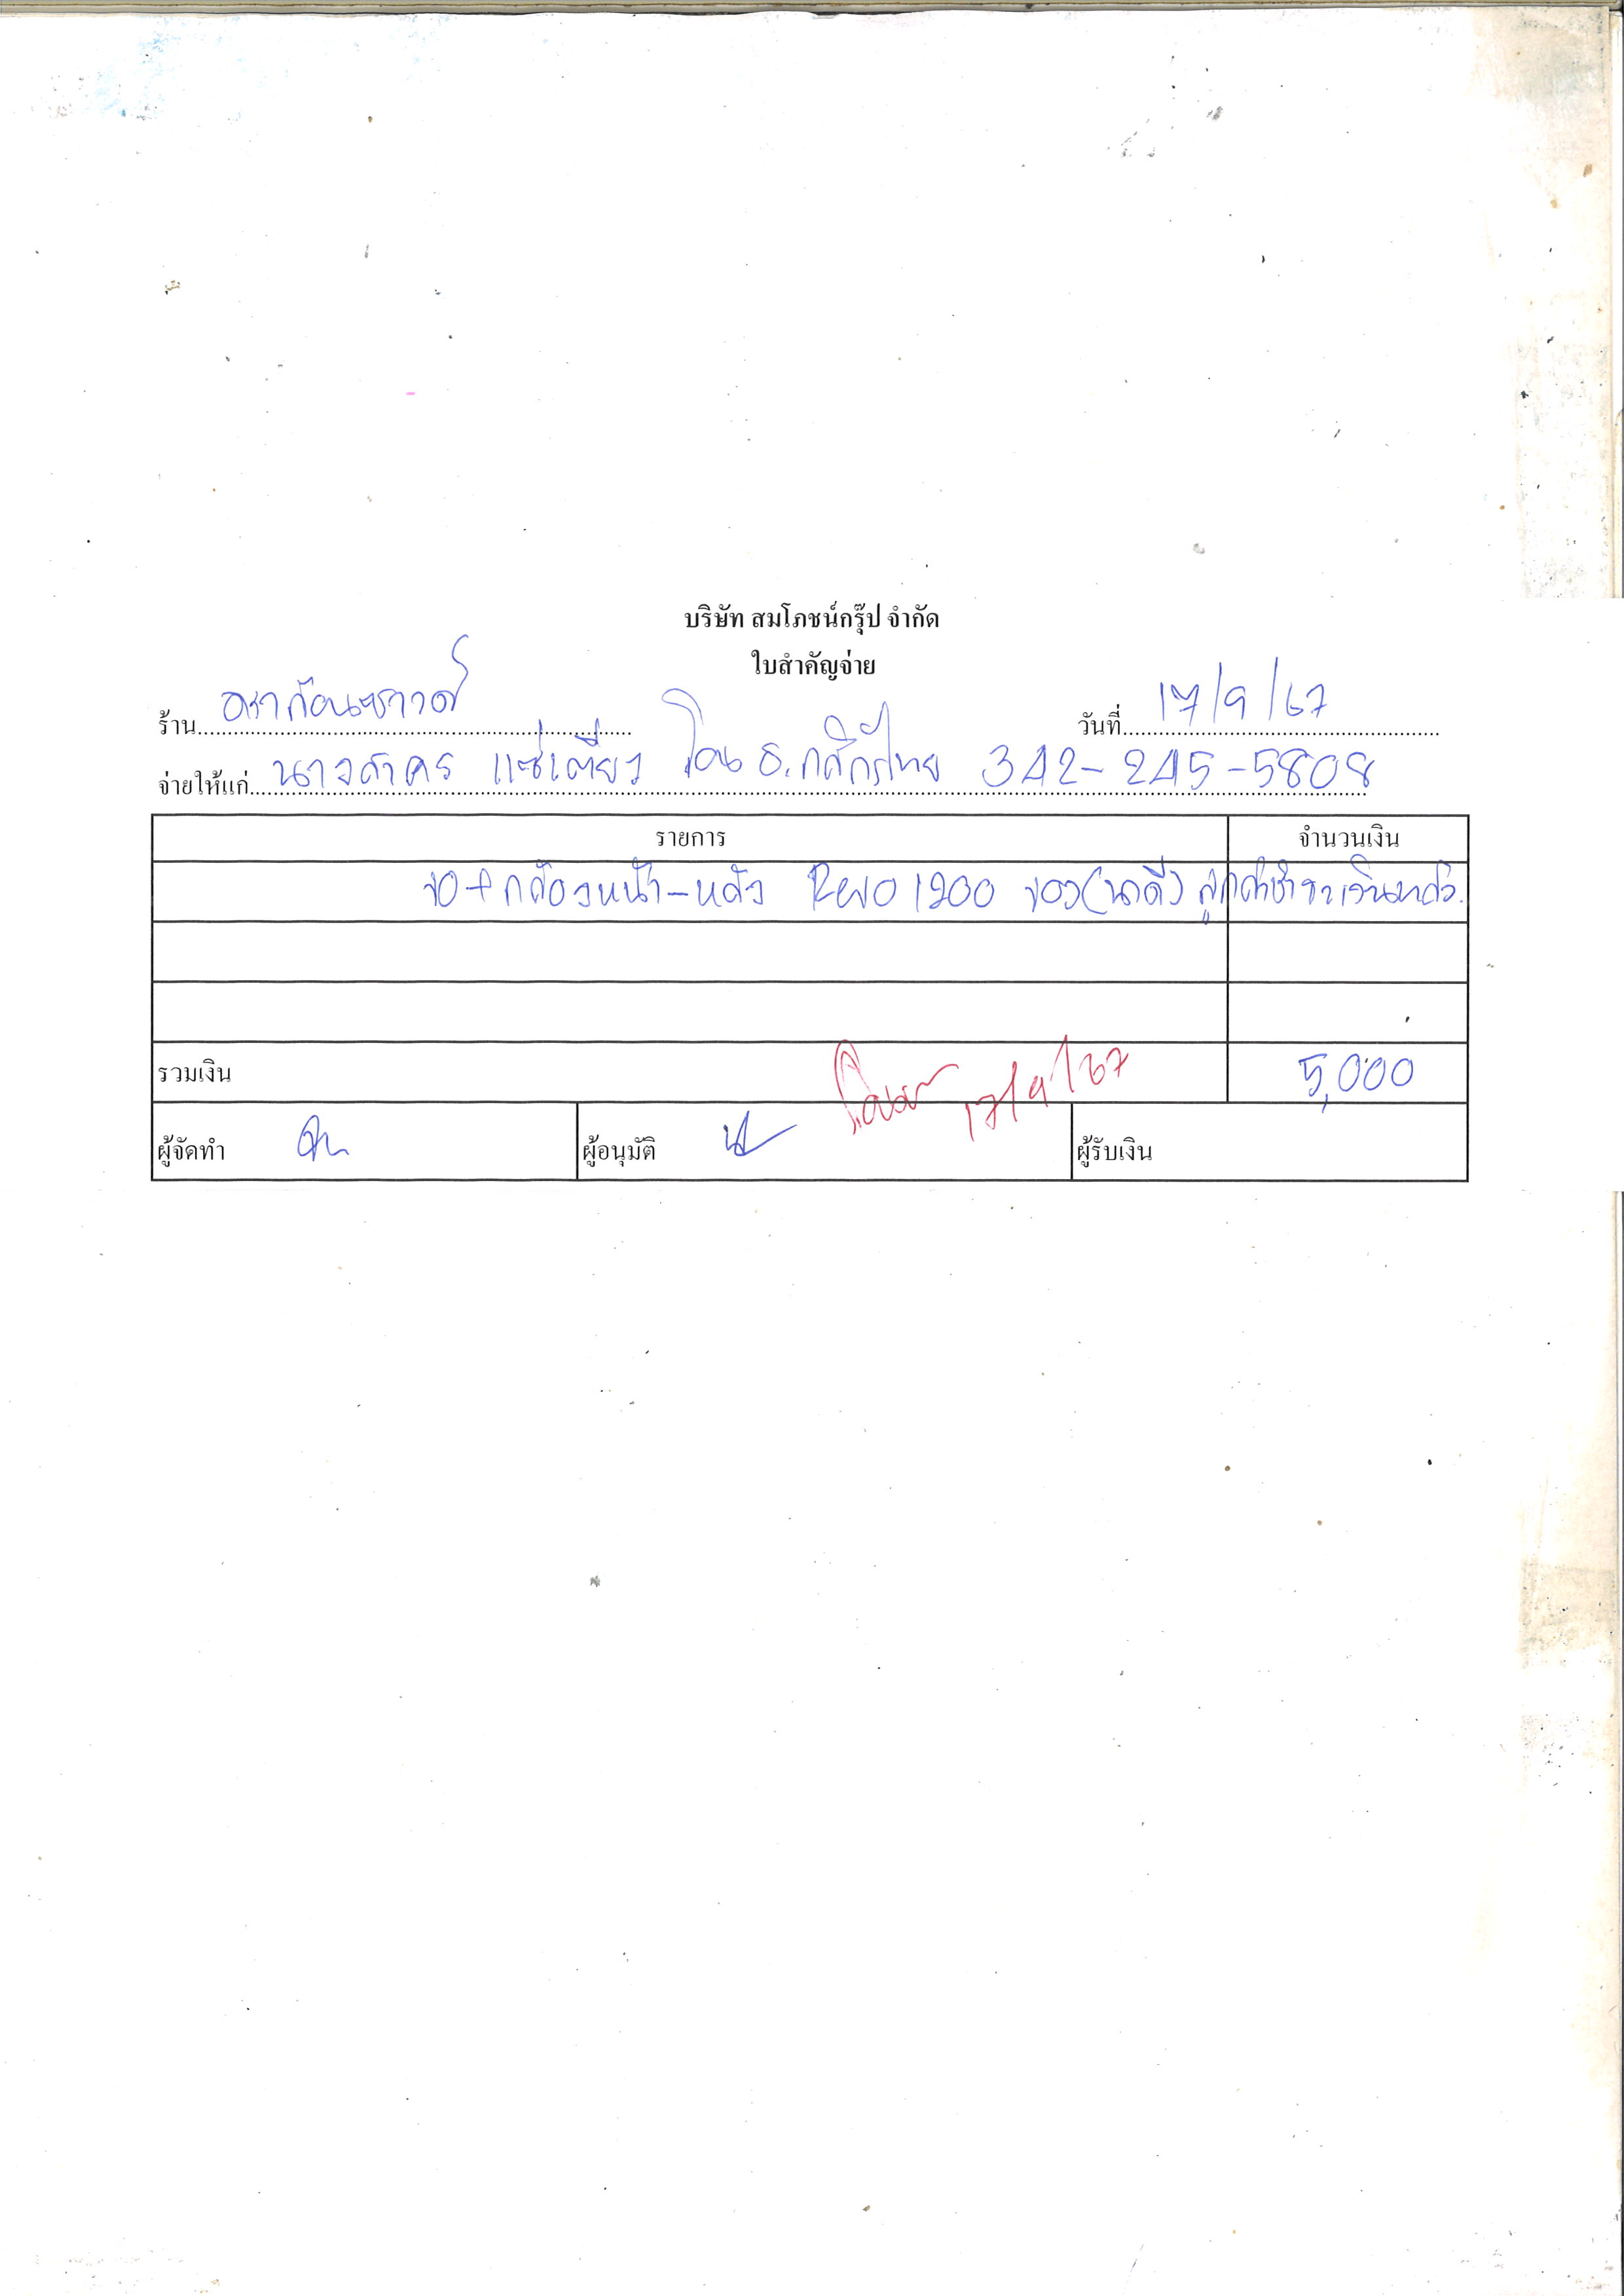 บริษัท สมโภชน์กรุ๊ป จำกัด
ใบสำคัญจ่าย
ร้าน
วันที่ 17/9/67
จ่ายให้แก่ นางสาคร แซ่เตียว โอน ธ.กสิกรไทย 342-245-5808
รายการ จำนวนเงิน
จอ+กล้องหน้า-หลัง Revo 1200 ของ(นาดี) ลูกค้าชำระเงินแล้ว.
รวมเงิน 5,000
17/9/67
ผู้จัดทำ ผู้อนุมัติ ผู้รับเงิน